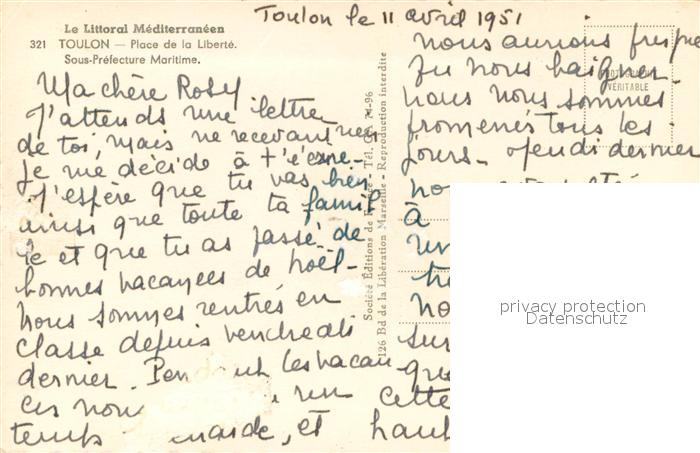 Le Littoral Méditerranéen
321 TOULON — Place de la Liberté.
Sous-Préfecture Maritime.
Toulon le 11 avril 1951
Ma chère Rosy
J'attends une lettre
de toi, mais ne recevant rien
je me décide à t'écrire.
J'espère que tu vas bien
ainsi que toute ta famil
le et que tu as passé de
bonnes vacances de Noël.
Nous sommes rentrés en
classe depuis vendredi
dernier. Pen ut les vacan
ces nous un
temps , et
Société Éditions de Tél. 74-96
126 Bd de la Libération Marseille - Reproduction interdite
PHOTOGRAPHIE
VÉRITABLE
nous aurions presque
pu nous baigner.
Nous nous sommes
promenés tous les
jours. dernier
no
à
un
no
sur
que
cette
haut
privacy protection
Datenschutz